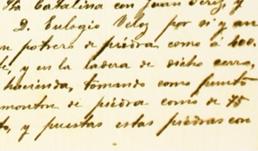 Sta Catalina con Juan Perez y
D. Eulogio Velez por si y en
n potrero de piedra como á 400.
e, y en la ladera de dicho cerro,
hacienda, tomando como punto
monton de piedra como de 45
to, y puestas estas piedras con